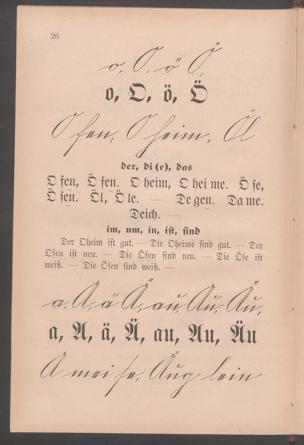 26
o, O, ö, Ö
o, O, ö, Ö
O fen, O heim, Öl
der, di (e), das
O fen, Ö fen. O heim, O hei me. Ö se,
Ö sen. Öl, Ö le. — De gen. Da me.
Deich. —
im, um, in, ist, sind
Der Oheim ist gut. — Die Oheime sind gut. — Der
Ofen ist neu. — Die Öfen sind neu. — Die Öse ist
weiß. — Die Ösen sind weiß. —
a, A, ä, Ä, au, Au, Äu,
a, A, ä, Ä, au, Au, Äu
A mei se, Äug lein